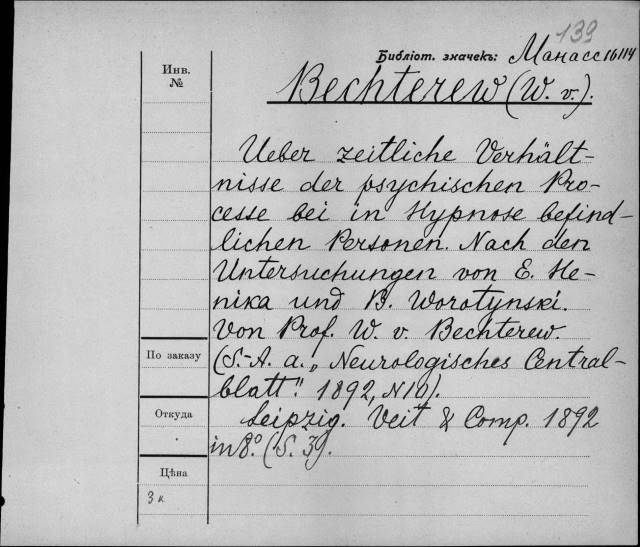 139
Библіот. значекъ: Манасс 16114
Инв.
№
Bechterew (W. v.).
Ueber zeitliche Verhält-
nisse der psychischen Pro-
cesse bei in Hypnose befind-
lichen Personen. Nach den
Untersuchungen von E. He-
nika und B. Worotynski.
Von Prof. W. v. Bechterew.
По заказу
(S.-A. a. „Neurologisches Central-
blatt". 1892, N10).
Откуда
Leipzig. Veit & Comp. 1892
in 8.° (S. 3).
Цѣна
3 к